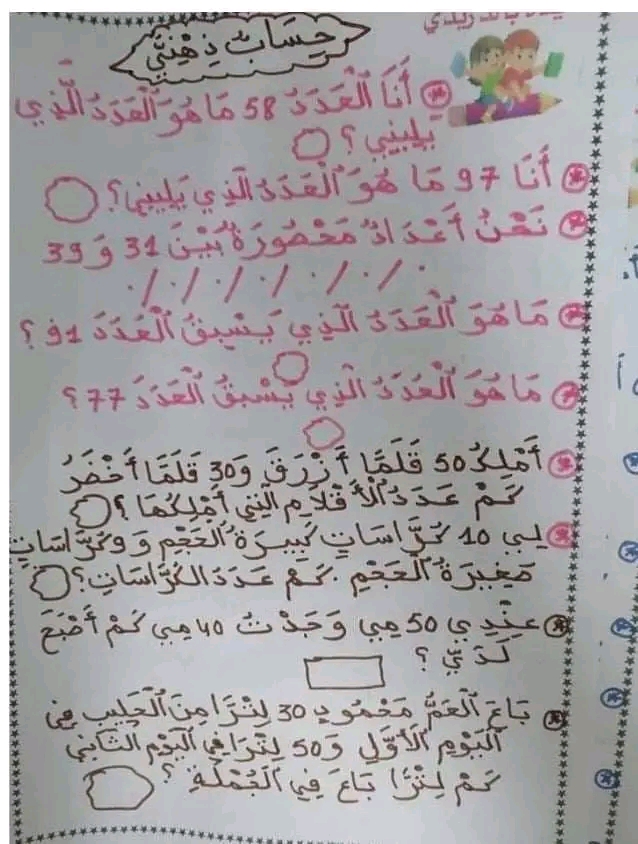 حِسَابٌ ذِهْنِيٌّ
أَنَا اَلْعَدَدُ 58 مَا هُوَ اَلْعَدَدُ الَّذِي
يَلِينِي ؟
أَنَا 97 مَا هُوَ اَلْعَدَدُ الَّذِي يَلِينِي؟
نَحْنُ أَعْدَادٌ مَحْصُورَةٌ بَيْنَ 31 وَ 39
./././././././.
مَا هُوَ اَلْعَدَدُ الَّذِي يَسْبِقُ اَلْعَدَدَ 91 ؟
مَا هُوَ اَلْعَدَدُ الَّذِي يَسْبِقُ اَلْعَدَدَ 77 ؟
أَمْلِكُ 50 قَلَمًا أَزْرَقَ وَ 30 قَلَمًا أَخْضَرُ
كَمْ عَدَدُ اَلْأَقْلَامِ الَّتِي أَمْلِكُهَا ؟
لِي 10 كُرَّاسَاتٍ كَبِيرَةُ اَلْحَجْمِ وَ 9 كُرَّاسَاتٍ
صَغِيرَةُ اَلْحَجْمِ . كَمْ عَدَدُ الكُرَّاسَاتِ ؟
عِنْدِي 50 مي وَجَدْتُ 40 مي كَمْ أَصْبَحَ
لَدَيَّ ؟
بَاعَ اَلْعَمُّ مَحْمُود 30 لِتْرًا مِنَ اَلْحَلِيبِ فِي
اَلْيَوْمِ اَلْأَوَّلِ وَ 50 لِتْرًا فِي اَلْيَوْمِ الثَّانِي
كَمْ لِتْرًا بَاعَ فِي اَلْجُمْلَةِ ؟